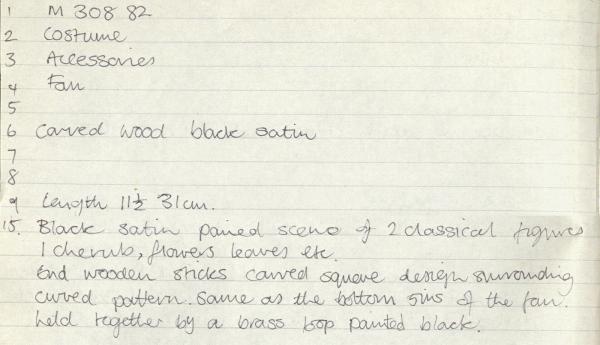 1 M 308 82
2 Costume
3 Accessories
4 Fan
5
6 Carved wood black satin
7
8
9 Length 11½ 31cm.
15. Black satin paired scene of 2 classical figures
1 cherub, flowers leaves etc.
End wooden sticks carved square design surrounding
curved pattern. Same as the bottom 5ins of the fan.
held together by a brass loop painted black.